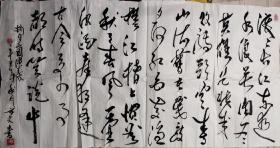 滚滚长江东逝
水浪花淘尽
英雄是非成败
转头空青
山依旧在几度
夕阳红白发渔
樵江渚上惯看
秋月春风一壶
浊酒喜相逢
古今多少事
都付笑谈中